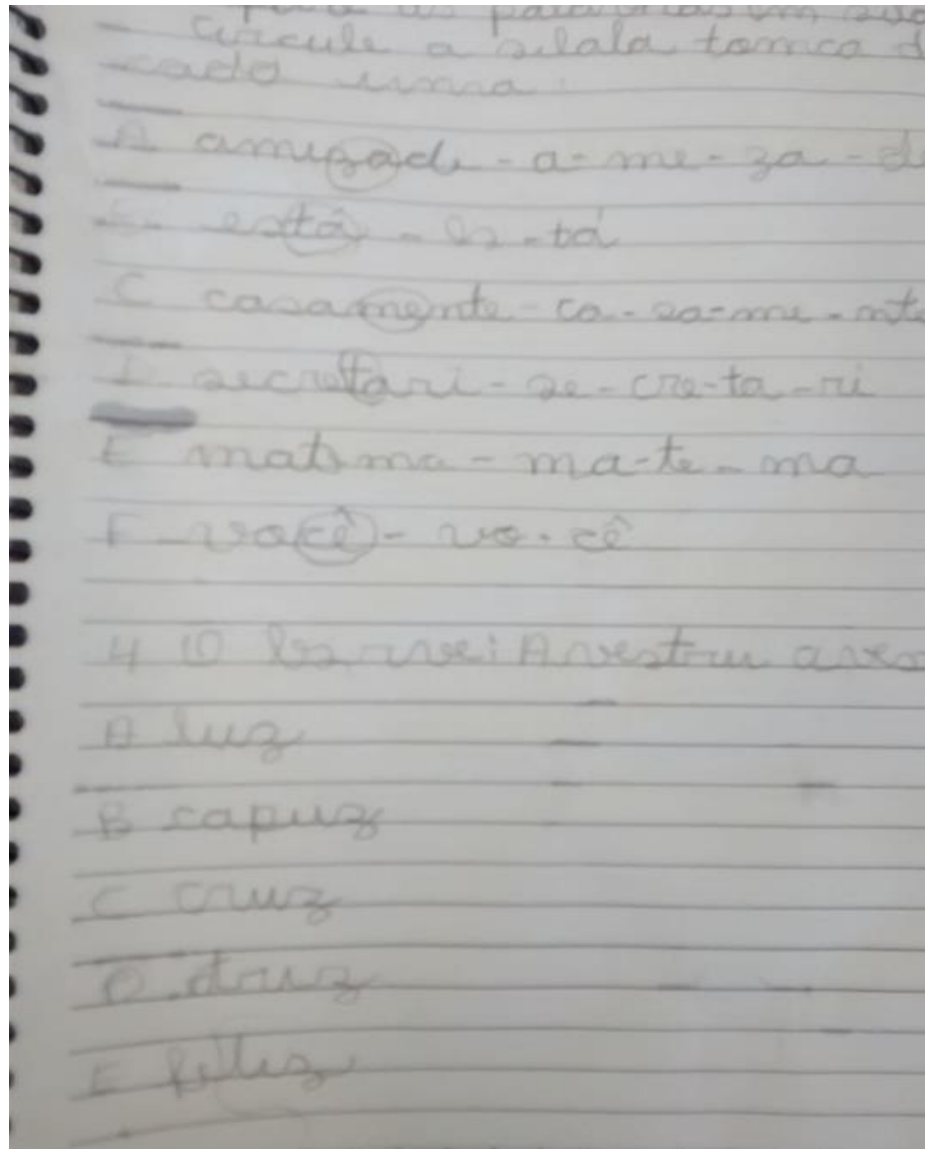 para as palavras em
circule a silala tomica d
cada uma.
A amizade - a-me-za-d
está - es-tá
C casamente - ca-sa-me-nte
secretari - se-cre-ta-ri
E matema - ma-te-ma
F você - vo-cê
4 O Avestru
A luz
B capuz
C cruz
D druz
E feliz